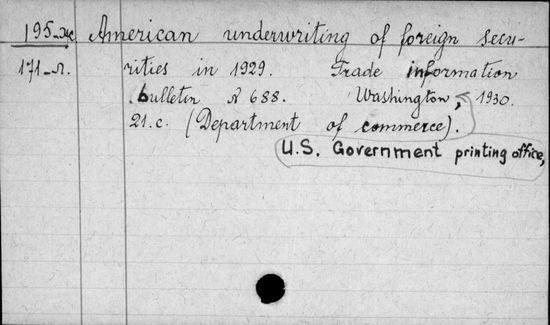 195-дис American underwriting of foreign secu-
171-л. rities in 1929. Trade information
bulletin N 688. Washington, 1930.
21.c. (Department of commerce).
U.S. Government printing office,